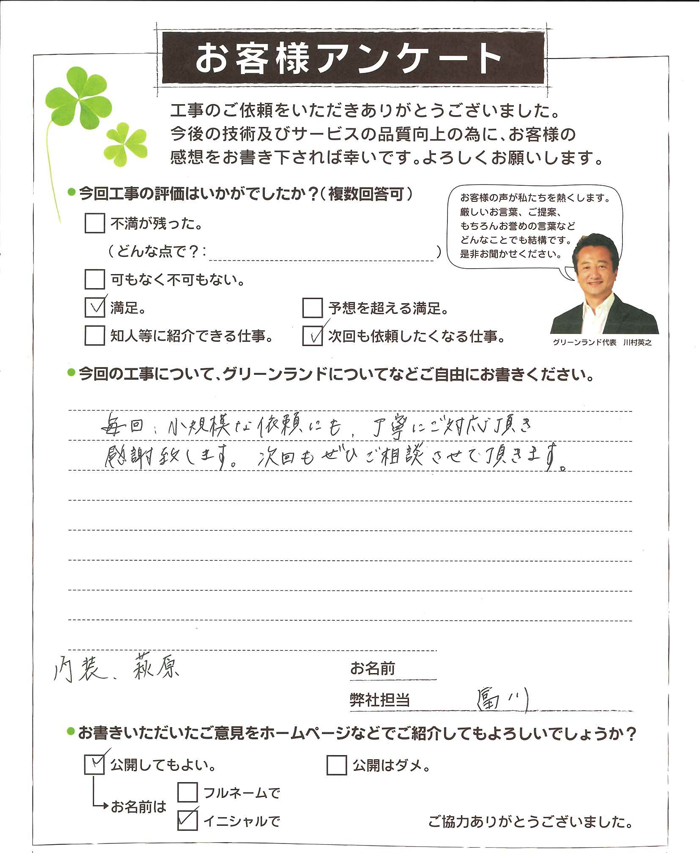 お客様アンケート
工事のご依頼をいただきありがとうございました。
今後の技術及びサービスの品質向上の為に、お客様の
感想をお書き下されば幸いです。よろしくお願いします。
●今回工事の評価はいかがでしたか？（複数回答可）
お客様の声が私たちを熱くします。
厳しいお言葉、ご提案、
もちろんお誉めの言葉など
どんなことでも結構です。
是非お聞かせください。
不満が残った。
（どんな点で？：　）
可もなく不可もない。
満足。
予想を超える満足。
知人等に紹介できる仕事。
次回も依頼したくなる仕事。
グリーンランド代表　川村英之
●今回の工事について、グリーンランドについてなどご自由にお書きください。
毎回、小規模な依頼にも、丁寧にご対応頂き
感謝致します。次回もぜひご相談させて頂きます。
内装、萩原
お名前
弊社担当　冨川
●お書きいただいたご意見をホームページなどでご紹介してもよろしいでしょうか？
公開してもよい。
公開はダメ。
お名前は
フルネームで
イニシャルで
ご協力ありがとうございました。